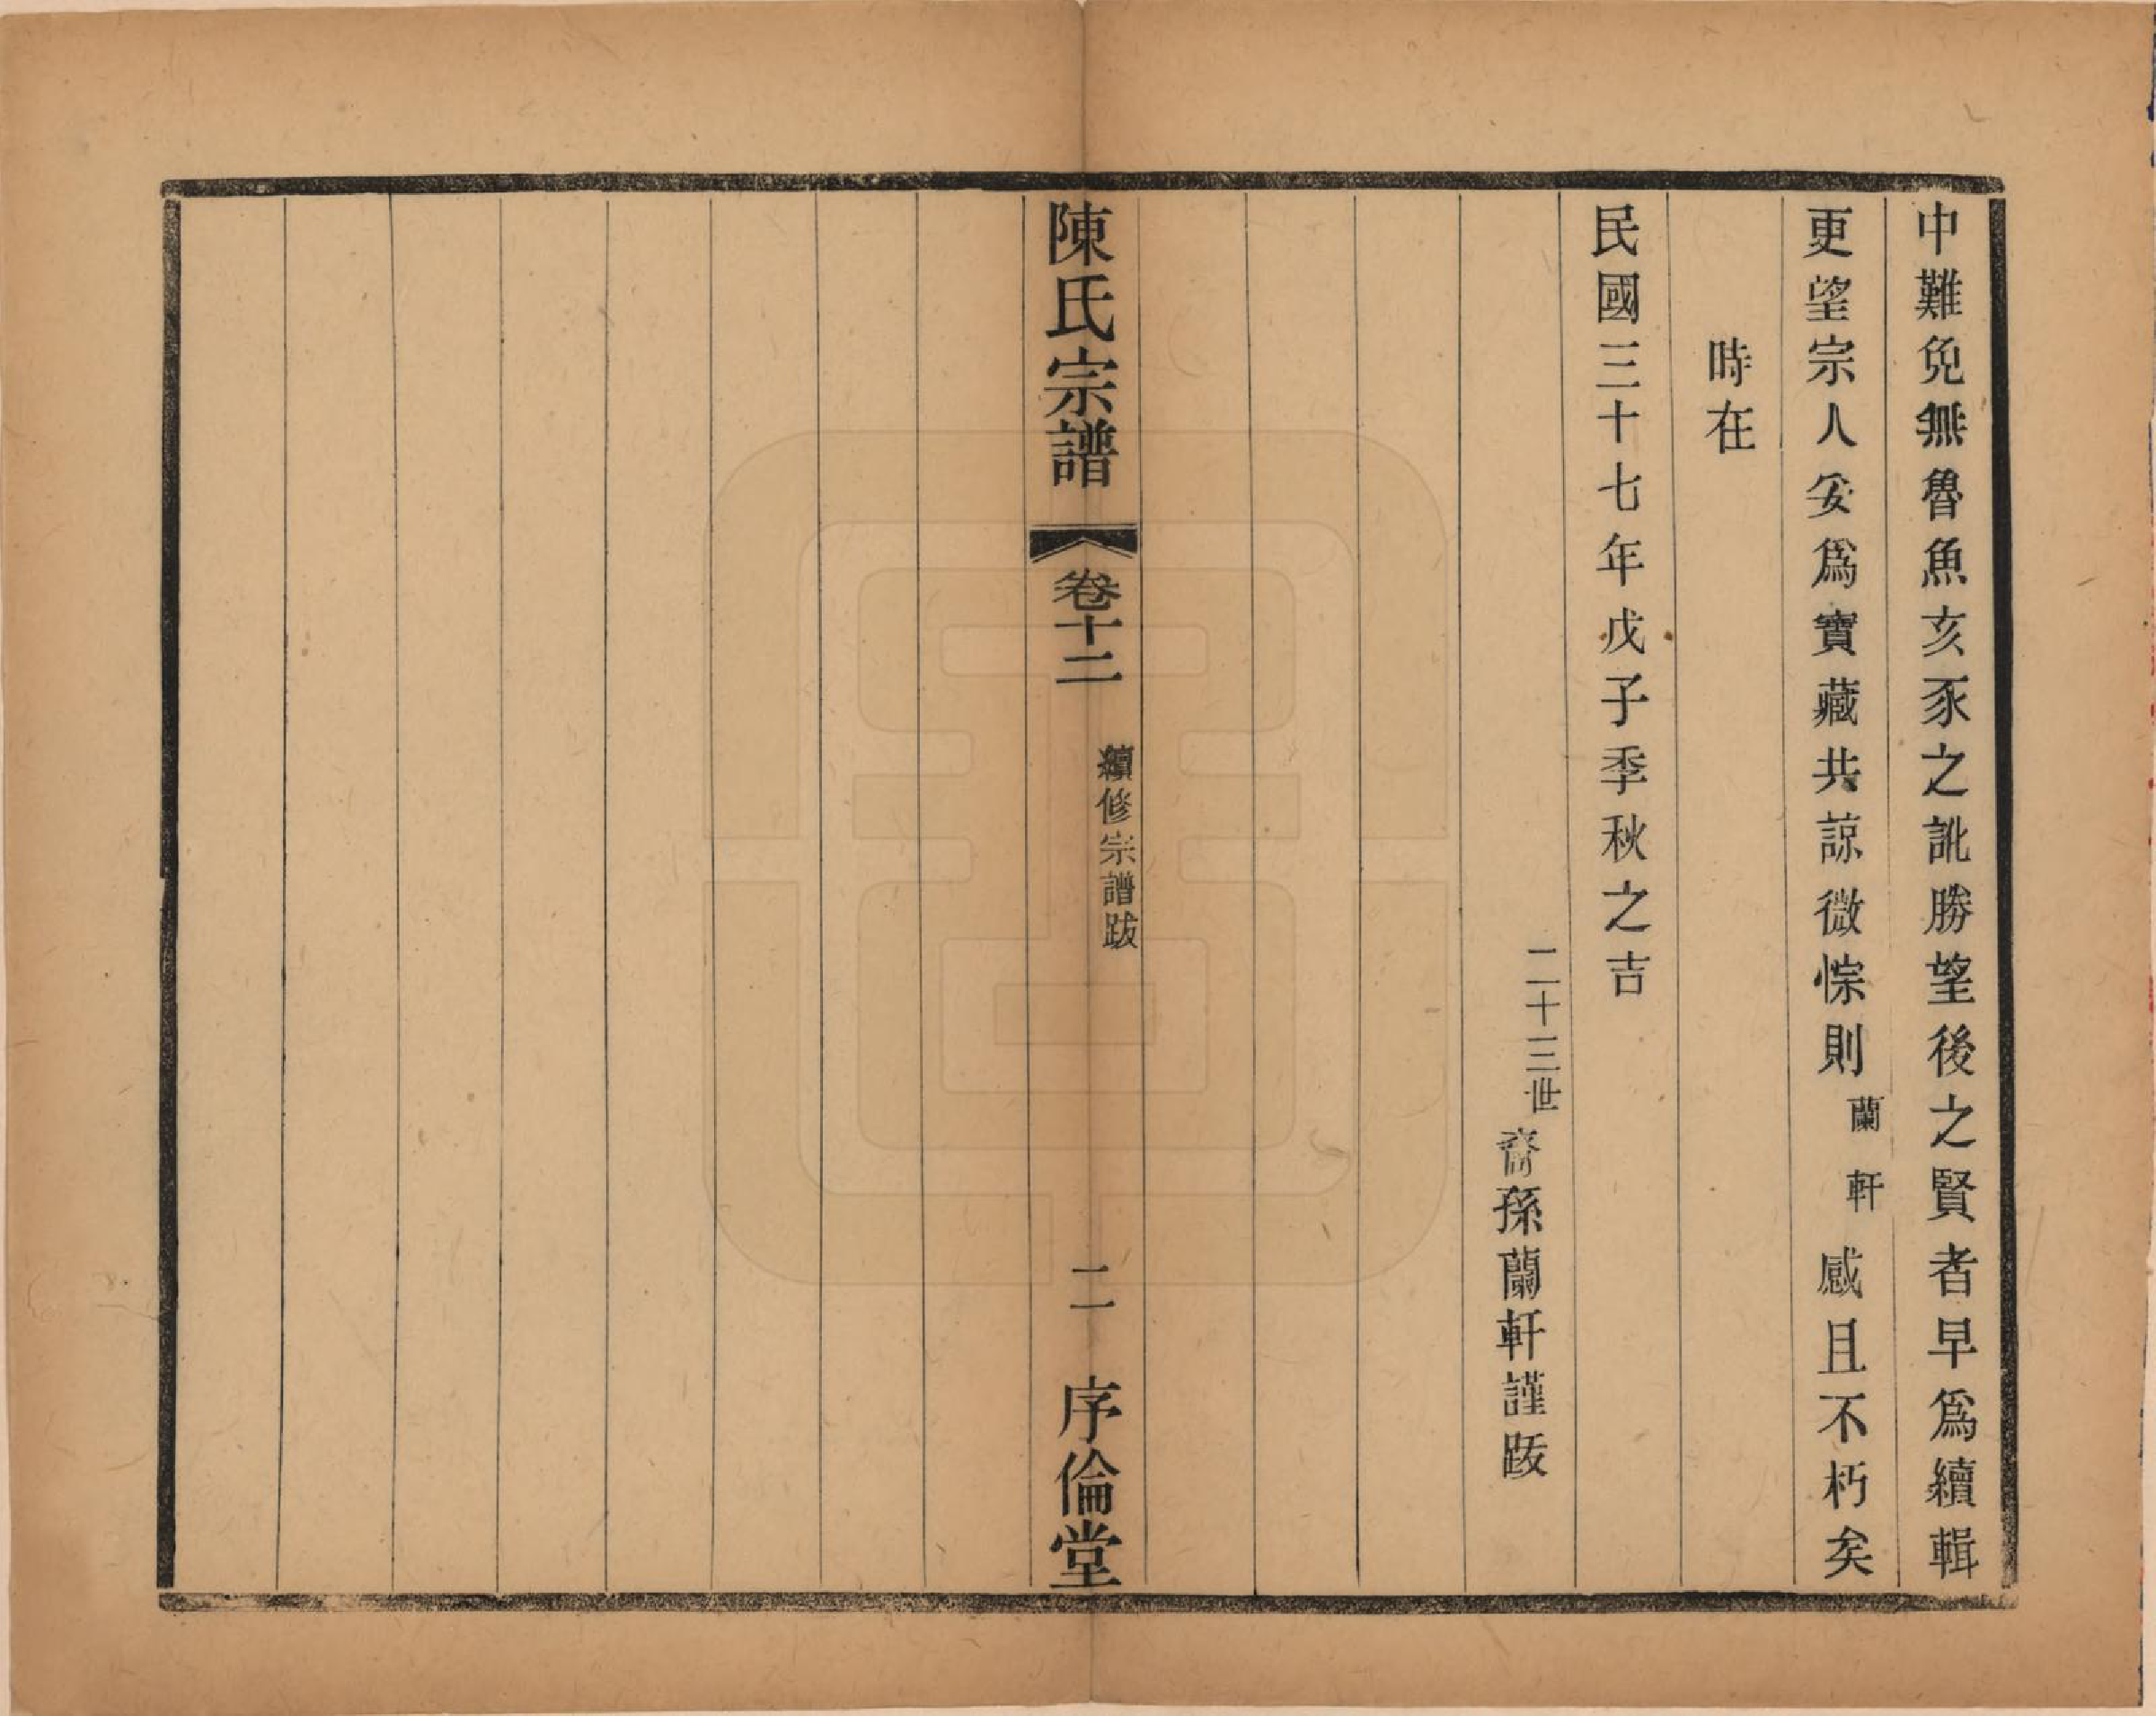 中難免無魯魚亥豕之訛勝望後之賢者早爲續輯
更望宗人妥爲寶藏共諒微悰則蘭軒感且不朽矣
時在
民國三十七年戊子季秋之吉
二十三世裔孫蘭軒謹跋
陳氏宗譜 卷十二 續修宗譜跋 二 序倫堂